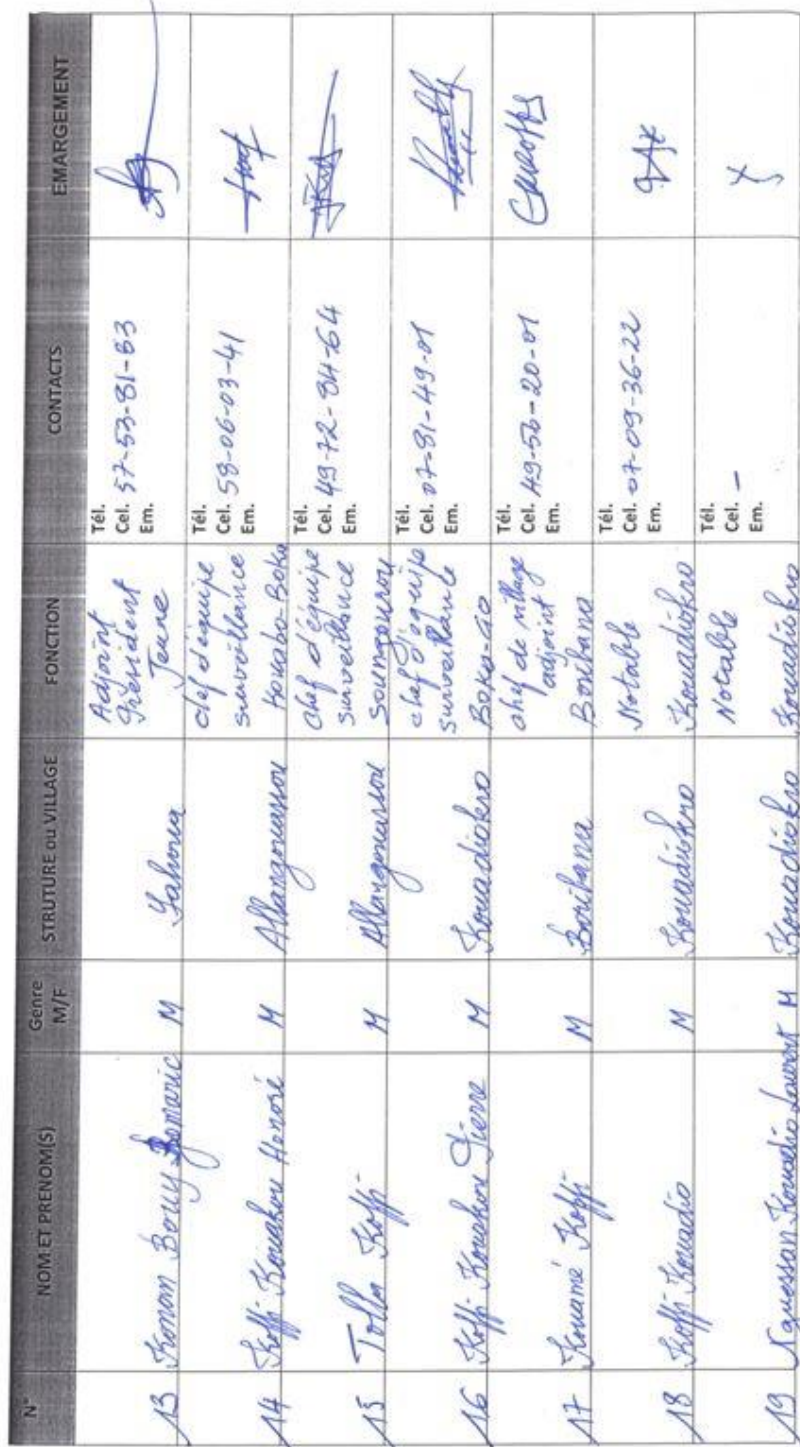 N° NOM ET PRENOM(S) Genre M/F STRUTURE ou VILLAGE FONCTION CONTACTS EMARGEMENT
13 Konan Bouy Romaric M Sahoua Adjoint Président Jeune Tél. Cel. 57-53-81-63 Em.
14 Koffi Kouakou Honoré M Allangouassou chef d'équipe surveillance Kouabo-Boka Tél. Cel. 58-06-03-41 Em.
15 Tolla Koffi M Allangouassou chef d'équipe surveillance Soungourou Tél. Cel. 49-72-84-64 Em.
16 Koffi Kouakou Pierre M Kouadiokro chef d'équipe surveillante Boko-Go Tél. Cel. 07-81-49-01 Em.
17 Kouamé Koffi M Boribana chef de village adjoint Boribana Tél. Cel. 49-56-20-01 Em.
18 Koffi Kouadio M Kouadiokro Notable Kouadiokro Tél. Cel. 07-09-36-22 Em.
19 Nguessan Kouadio Laurent M Kouadiokro Notable Kouadiokro Tél. Cel. - Em.